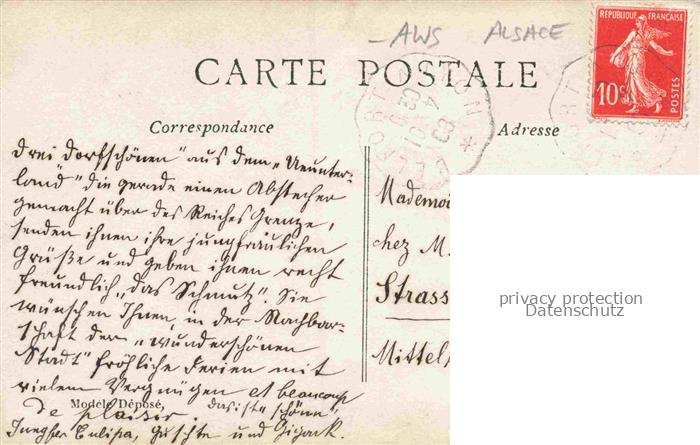 – AWS ALSACE
REPUBLIQUE FRANÇAISE
10c
POSTES
CARTE POSTALE
Correspondance
Adresse
drei Dorfschönen" aus dem
land" die gerade einen Abstecher
gemacht über des Reiches Grenze,
senden ihnen ihre jungfräulichen
Grüße und geben ihnen recht
freundlich „das Schmutz". Sie
wünschen Ihnen, in der Nachbar-
schaft der „wunderschönen
Stadt" fröhliche Ferien mit
vielem Vergnügen et beaucoup
de plaisir. das ist schönn,
Modèle Déposé,
und
Mademoi
chez M.
Strass
Mittel
privacy protection
Datenschutz